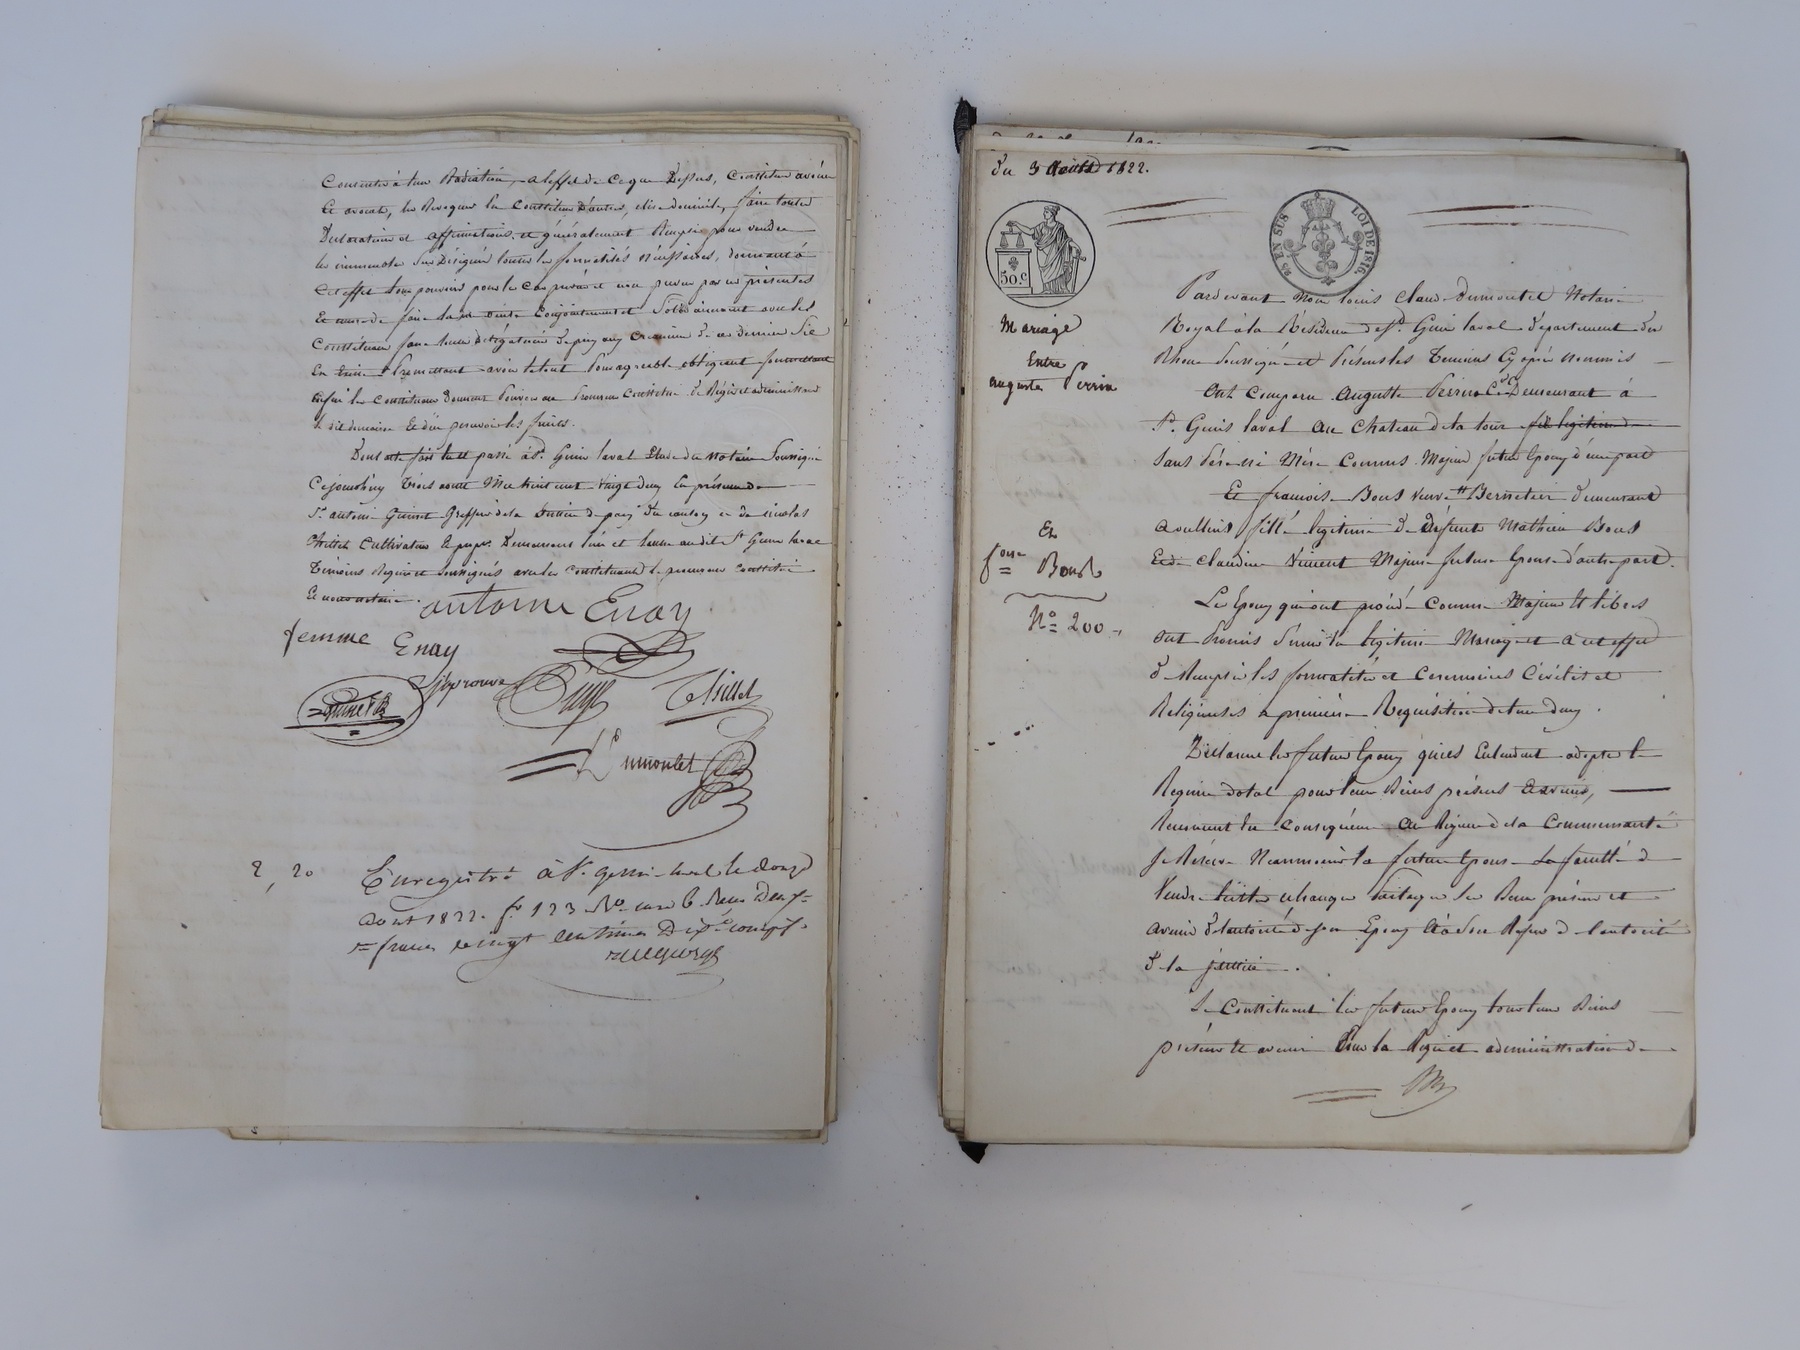 Consentir à leur Radiation, a l'effet de ce que Dessus, Constituer avoué
Et avocat, les Revoquer En Constituer D'autres, élire domicile, faire toutes
Declarations et affirmations et généralement Remplir pour vendre
les immeubles Sus Désignés toutes les formalités nécessaires, donnant à
Cet effet tous pouvoirs pour le cas prévu et non prévu par ces présentes
Conjointement et Solidairement avec les
Constituans
Enfin les Constituans donnent Pouvoir au Procureur Constitué de Régir et administrer
le dit domaine Et d'en percevoir les fruits.
Dont acte fait lu et passé à St. Genis laval Etude du notaire Soussigné
Cejourd'huy trois aout Mil huit cent vingt deux En présence de
Sr. antoine Guinet Greffier de la Justice de paix du canton et de nicolas
Thillet Cultivateur Demeurans l'un et l'autre audit St Genis laval
Témoins Requis et Soussignés avec les constituans le procureur constitué
Et nous notaire.
antoine Enay
femme Enay
japrouve
Thillet
Dumontet
2, 20
Enregistré à St. genis-laval le douze
aout 1822. fo 123 Ro. case 6. Reçu Deux
francs vingt centimes Dixe. compris.
Du 3 Aout 1822.
50 c.
EN SUS
LOI DE 1816.
Mariage
Entre
auguste Perrin
Et
foise
Bous
No 200
Pardevant Nous Louis Claude Dumontet Notaire
Royal à la Résidence de St. Genis laval département du
Rhône Soussigné et Présens les Témoins Cy après nommés
Ont Comparu Auguste Perrin Demeurant à
St. Genis laval Au Chateau de la tour fils legitime de
Sans Père ni Mère Connus Majeur futur Epoux d'une part
Et françoise Bous veuve Demeurant
à oullins fille legitime de Défunt Mathieu Bous
Et de Claudine Vincent Majeure future Epouse d'autre part.
Les Epoux qui ont procédé Comme Majeurs Et libres
ont Promis S'unir En légitime Mariage et a cet effet
de Remplir les formalités et Ceremonies Civiles et
Religieuses a première Réquisition de l'un d'eux.
Déclarent les futurs Epoux qu'ils Entendent adopter le
Regime dotal pour leurs Biens présens Et avenir,
Renoncent En Conséquence Au Régime de la Communauté
Se Réserve Néanmoins la future Epouse la faculté de
Vendre échanger Partager Ses Biens présens et
avenir de l'autorité de son Epoux Et à Son Refus de l'autorité
de la justice.
Se Constituent les futurs Epoux tous leurs Biens
présens Et avenir Pour la Régie et administration de